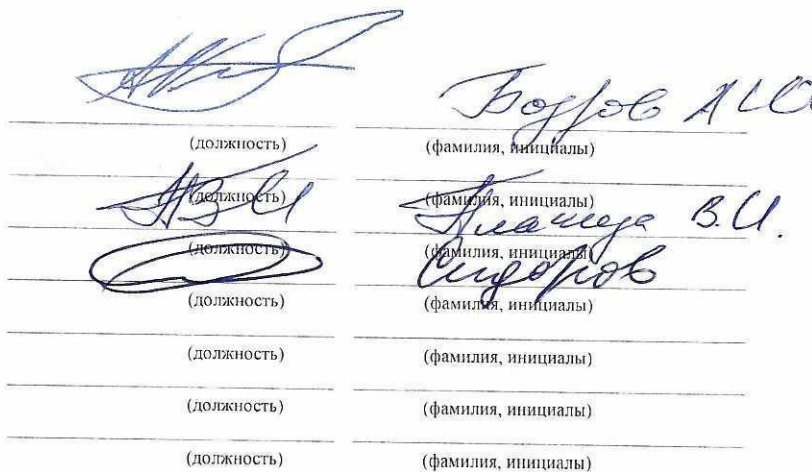 Бодров А Ю
(должность) (фамилия, инициалы)
(должность) (фамилия, инициалы)
В.И.
(должность) (фамилия, инициалы)
Сидоров
(должность) (фамилия, инициалы)
(должность) (фамилия, инициалы)
(должность) (фамилия, инициалы)
(должность) (фамилия, инициалы)